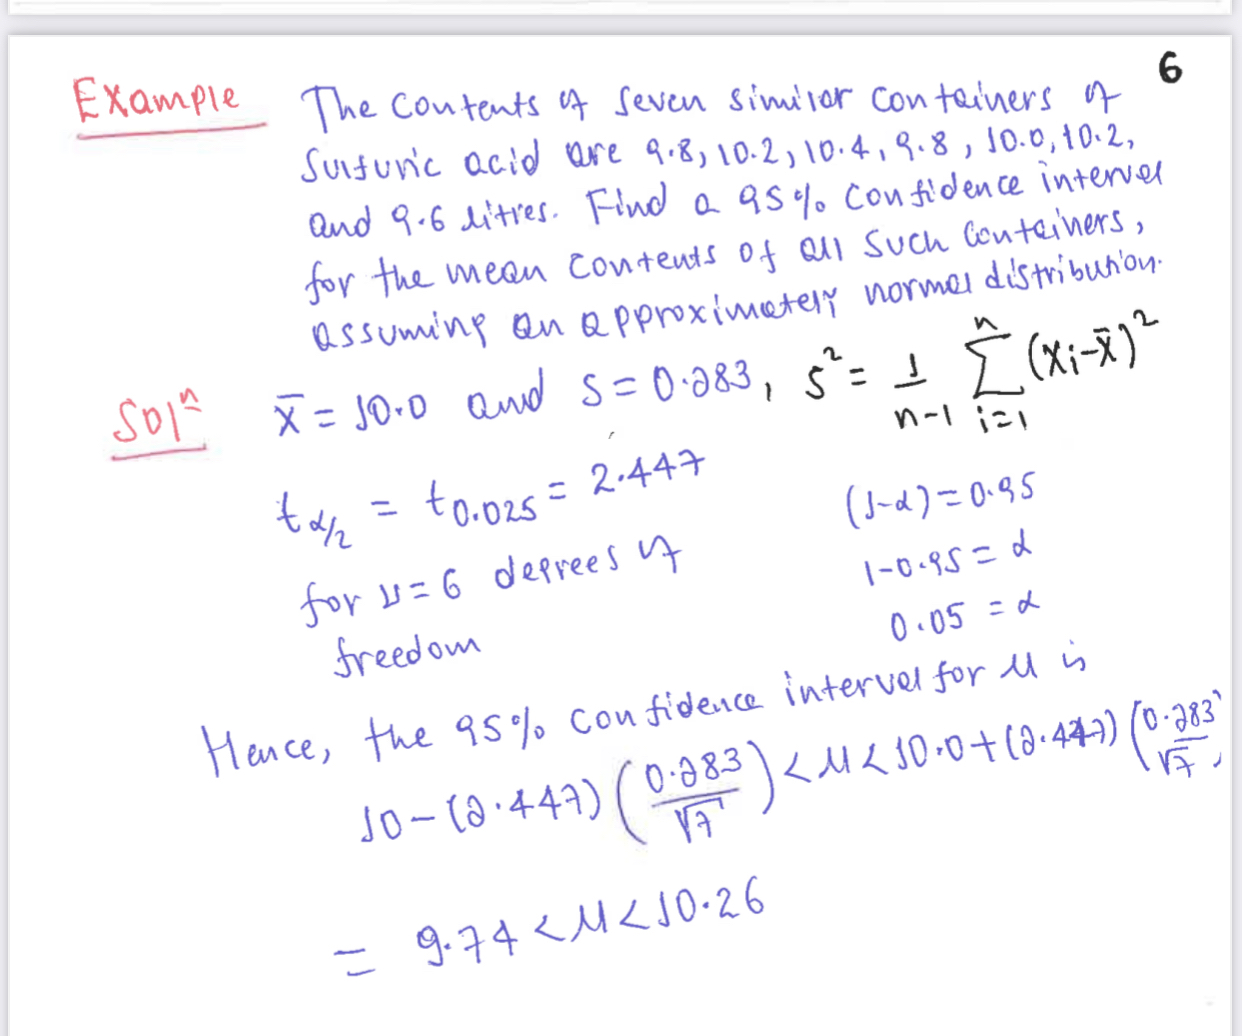 6
Example The contents of seven similar containers of
Sulfuric acid are 9.8, 10.2, 10.4, 9.8, 10.0, 10.2,
and 9.6 litres. Find a 95% confidence interval
for the mean contents of all such containers,
assuming an approximately normal distribution.
Solⁿ x̄ = 10.0 and S = 0.283, s² = 1/(n-1) Σ_{i=1}^{n} (xi - x̄)²
t_{α/2} = t_{0.025} = 2.447
(1-α) = 0.95
for ν = 6 degrees of
1-0.95 = α
freedom
0.05 = α
Hence, the 95% confidence interval for μ is
10 - (2.447) (0.283/√7) < μ < 10.0 + (2.447) (0.283/√7)
= 9.74 < μ < 10.26